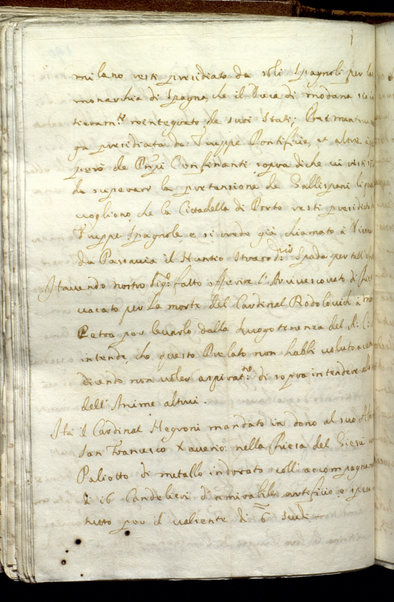 milano resti presidiato da soli Spagnoli per la
monarchia di Spagna, che il Duca di Modana sia in
tieram.te reintegrato de suoi Stati; che Mantua
ga presidiata da Truppe Pontificie, et altre
però de Prnpi Confinanti sopra di che vi resti
da superare la pretensione de Gallispani li
vogliono che la Cittadella di Porto resti presidiata
Truppe Spagnole e si crede già chiamato à Vienna
da Passavia il Nuntio Straord.rio Spada per tal
Havendo nostro Sig.re fatto offerire l'Arcivescovato di
vacato per la morte del Cardinal Rodolovich à
Petra per levarlo dalla luogotenenza del A. C.
intende, che questo Prelato non habbi voluto
dicendo non voler aspirat.ne di sopra intendere al
dell'Anime altrui.
Hà il Cardinal Negroni mandato in dono al suo
San Francesco Xaverio nella Chiesa del Giesù
Paliotto di metallo indorato coll'accompagna
di 16 Candelieri d'ammirabile artificio e
tutto per il valiente di 6 Scudi